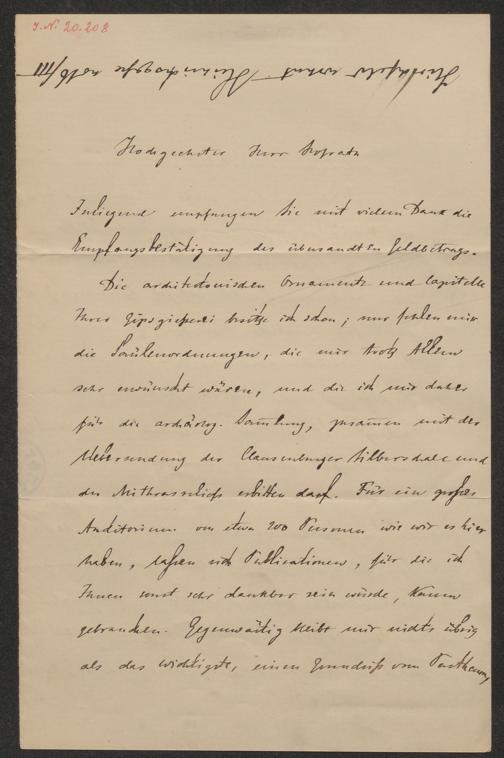 I.N. 20.208
Hochgeehrter Herr Hofrath
Inliegend empfangen Sie mit vielem Dank die
Empfangsbestätigung des übersandten Geldbetrags.
Die architektonischen Ornamente und Capitelle
Ihrer Gipsgießerei besitze ich schon; nur fehlen mir
die Säulenordnungen, die mir trotz Allem
sehr erwünscht wären, und die ich mir daher
für die archäolog. Sammlung, zusammen mit der
Uebersendung der Clausenburger Silberschale und
des Mithrasreliefs erbitten darf. Für ein großes
Auditorium von etwa 200 Personen wie wir es hier
haben, laßen sich Publicationen, für die ich
Ihnen sonst sehr dankbar sein würde, kaum
gebrauchen. Gegenwärtig bleibt mir nichts übrig
als das wichtigste, einen Grundriß vom Parthenon,